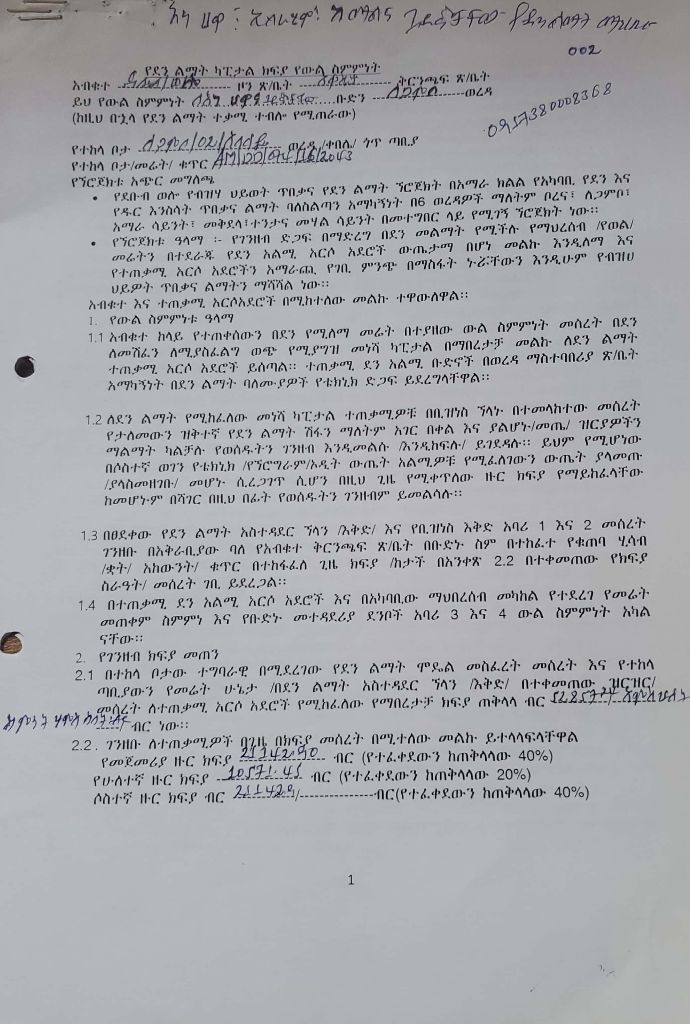 002
የደን ልማት ካፒታል ክፍያ የውል ስምምነት
አብቁተ ዞን ጽ/ቤት ቅርንጫፍ ጽ/ቤት
ይህ የውል ስምምነት ቡድን ወረዳ
(ከዚህ በኋላ የደን ልማት ተቃሚ ተብሎ የሚጠራው)
0917380008368
የተከላ ቦታ ወረዳ /ቀበሌ/ ጎጥ ጣቢያ
የተከላ ቦታ/መሬት/ ቁጥር
የኘሮጀክቱ አጭር መግለጫ
• የደቡብ ወሎ የብዝሃ ህይወት ጥበቃና የደን ልማት ኘሮጀክት በአማራ ክልል የአካባቢ የደን እና
የዱር እንስሳት ጥበቃና ልማት ባለስልጣን አማካኝነት በ6 ወረዳዎች ማለትም ቦረና፣ ለጋምቦ፣
አማራ ሳይንት፣ መቅደላ፣ተንታና መሃል ሳይንት በመተግበር ላይ የሚገኝ ኘሮጀክት ነው፡፡
• የኘሮጀክቱ ዓላማ ፡- የገንዘብ ድጋፍ በማድረግ በደን መልማት የሚችሉ የማህበረሰብ /የወል/
መሬትን በተደራጁ የደን አልሚ አርሶ አደሮች ውጤታማ በሆነ መልኩ እንዲለማ እና
የተጠቃሚ አርሶ አደሮችን አማራጪ የገቢ ምንጭ በማስፋት ኑሯቸውን እንዲሁም የብዝሀ
ህይዎት ጥበቃና ልማትን ማሻሻል ነው፡፡
አብቁተ እና ተጠቃሚ አርሶአደሮች በሚከተለው መልኩ ተዋውለዋል፡፡
1. የውል ስምምነቱ ዓላማ
1.1 አብቁተ ከላይ የተጠቀሰውን በደን የሚለማ መሬት በተያዘው ውል ስምምነት መሰረት በደን
ለመሸፈን ለሚያስፈልግ ወጭ የሚያግዝ መነሻ ካፒታል በማበረታቻ መልክ ለደን ልማት
ተጠቃሚ አርሶ አደሮች ይሰጣል፡፡ ተጠቃሚ ደን አልሚ ቡድኖች በወረዳ ማስተባበሪያ ጽ/ቤት
አማካኝነት በደን ልማት ባለሙያዎች የቴክኒክ ድጋፍ ይደረግላቸዋል፡፡
1.2 ለደን ልማት የሚከፈለው መነሻ ካፒታል ተጠቃሚዎቹ በቢዝነስ ኘላኑ በተመላከተው መሰረት
የታለመውን ዝቅተኛ የደን ልማት ሽፋን ማለትም አገር በቀል እና ያልሆኑ/መጤ/ ዝርያዎችን
ማልማት ካልቻሉ የወሰዱትን ገንዘብ እንዲመልሱ /እንዲከፍሉ/ ይገደዳሉ፡፡ ይህም የሚሆነው
በሶስተኛ ወገን የቴክኒክ /የኘሮግራም/ኦዲት ውጤት አልሚዎቹ የሚፈለገውን ውጤት ያላመጡ
/ያላስመዘገቡ/ መሆኑ ሲረጋገጥ ሲሆን በዚህ ጊዜ የሚቀጥለው ዙር ክፍያ የማይከፈላቸው
ከመሆኑም በሻገር በዚህ በፊት የወሰዱትን ገንዘብም ይመልሳሉ፡፡
1.3 በፀደቀው የደን ልማት አስተዳደር ኘላን /እቅድ/ እና የቢዝነስ እቅድ አባሪ 1 እና 2 መሰረት
ገንዘቡ በአቅራቢያው ባለ የአብቁተ ቅርንጫፍ ጽ/ቤት በቡድኑ ስም በተከፈተ የቁጠባ ሂሳብ
/ቋት/ አካውንት/ ቁጥር በተከፋፈለ ጊዜ ክፍያ /ከታች በአንቀጽ 2.2 በተቀመጠው የክፍያ
ስራዓት/ መሰረት ገቢ ይደረጋል፡፡
1.4 በተጠቃሚ ደን አልሚ አርሶ አደሮች እና በአካባቢው ማህበረሰብ መካከል የተደረገ የመሬት
መጠቀም ስምምነ እና የቡድኑ መተዳደሪያ ደንቦች አባሪ 3 እና 4 ውል ስምምነት አካል
ናቸው፡፡
2. የገንዘብ ክፍያ መጠን
2.1 በተከላ ቦታው ተግባራዊ በሚደረገው የደን ልማት ሞዴል መስፈረት መሰረት እና የተከላ
ጣቢያውን የመሬት ሁኔታ /በደን ልማት አስተዳደር ኘላን /እቅድ/ በተቀመጠው ዝርዝር/
መሰረት ለተጠቃሚ አርሶ አደሮች የሚከፈለው የማበረታቻ ክፍያ ጠቅላላ ብር
/ ብር ነው፡፡
2.2. ገንዘቡ ለተጠቃሚዎች በጊዜ በክፍያ መሰረት በሚተለው መልኩ ይተላላፍላቸዋል
የመጀመሪያ ዙር ክፍያ 21142.90 ብር (የተፈቀደውን ከጠቅላላው 40%)
የሁለተኛ ዙር ክፍያ 10571.45 ብር (የተፈቀደውን ከጠቅላላው 20%)
ሶስተኛ ዙር ክፍያ ብር 211429/ ብር(የተፈቀደውን ከጠቅላላው 40%)
1